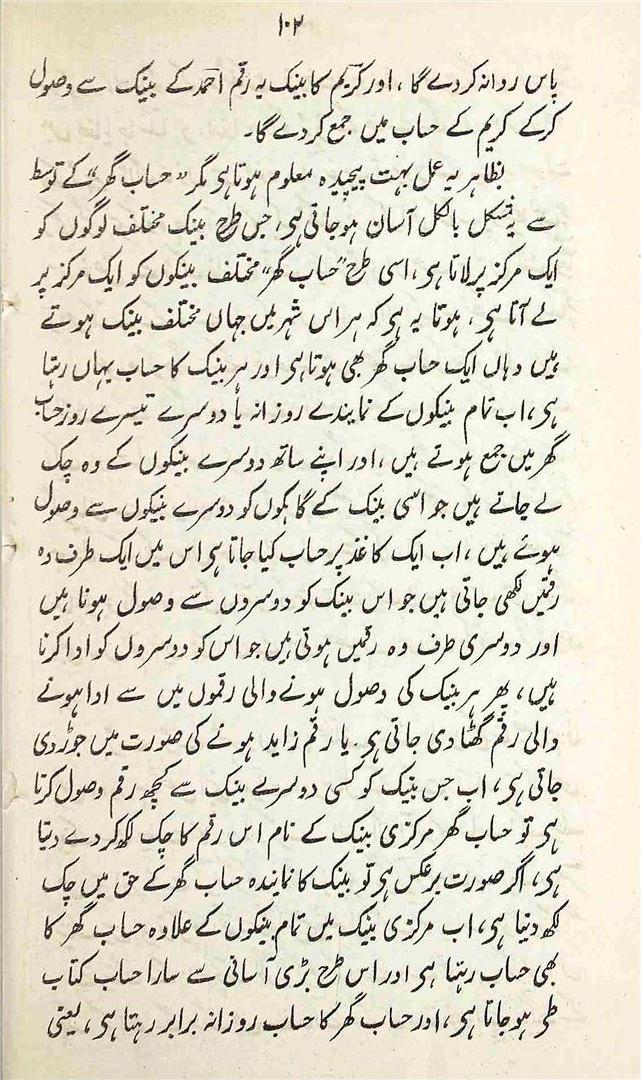 ۱۰۲
پاس روانہ کردے گا، اور کریم کا بینک یہ رقم احمد کے بینک سے وصول
کرکے کریم کے حساب میں جمع کردے گا۔
بظاہر یہ عمل بہت پیچیدہ معلوم ہوتا ہی مگر "حساب گھر" کے توسط
سے یہ مشکل بالکل آسان ہوجاتی ہی، جس طرح بینک مختلف لوگوں کو
ایک مرکز پر لاتا ہی، اسی طرح "حساب گھر" مختلف بینکوں کو ایک مرکز پر
لے آتا ہی، ہوتا یہ ہی کہ ہر اس شہر میں جہاں مختلف بینک ہوتے
ہیں وہاں ایک حساب گھر بھی ہوتا ہی اور ہر بینک کا حساب یہاں رہتا
ہی، اب تمام بینکوں کے نمایندے روزانہ یا دوسرے تیسرے روز حساب
گھر میں جمع ہوتے ہیں، اور اپنے ساتھ دوسرے بینکوں کے وہ چک
لے جاتے ہیں جو اسی بینک کے گاہکوں کو دوسرے بینکوں سے وصول
ہوئے ہیں، اب ایک کاغذ پر حساب کیا جاتا ہی اس میں ایک طرف وہ
رقمیں لکھی جاتی ہیں جو اس بینک کو دوسروں سے وصول ہونا ہیں
اور دوسری طرف وہ رقمیں ہوتی ہیں جو اس کو دوسروں کو ادا کرنا
ہیں، پھر ہر بینک کی وصول ہونے والی رقموں میں سے ادا ہونے
والی رقم گھٹا دی جاتی ہی۔ یا رقم زاید ہونے کی صورت میں جوڑ دی
جاتی ہی، اب جس بینک کو کسی دوسرے بینک سے کچھ رقم وصول کرتا
ہی تو حساب گھر مرکزی بینک کے نام اس رقم کا چک لکھ کر دے دیتا
ہی، اگر صورت برعکس ہی تو بینک کا نمایندہ حساب گھر کے حق میں چک
لکھ دیتا ہی، اب مرکزی بینک میں تمام بینکوں کے علاوہ حساب گھر کا
بھی حساب رہتا ہی اور اس طرح بڑی آسانی سے سارا حساب کتاب
طی ہوجاتا ہی، اور حساب گھر کا حساب روزانہ برابر رہتا ہی، یعنی